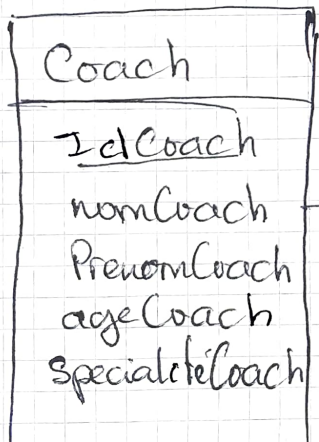 Coach
IdCoach
nomCoach
PrenomCoach
ageCoach
specialitéCoach